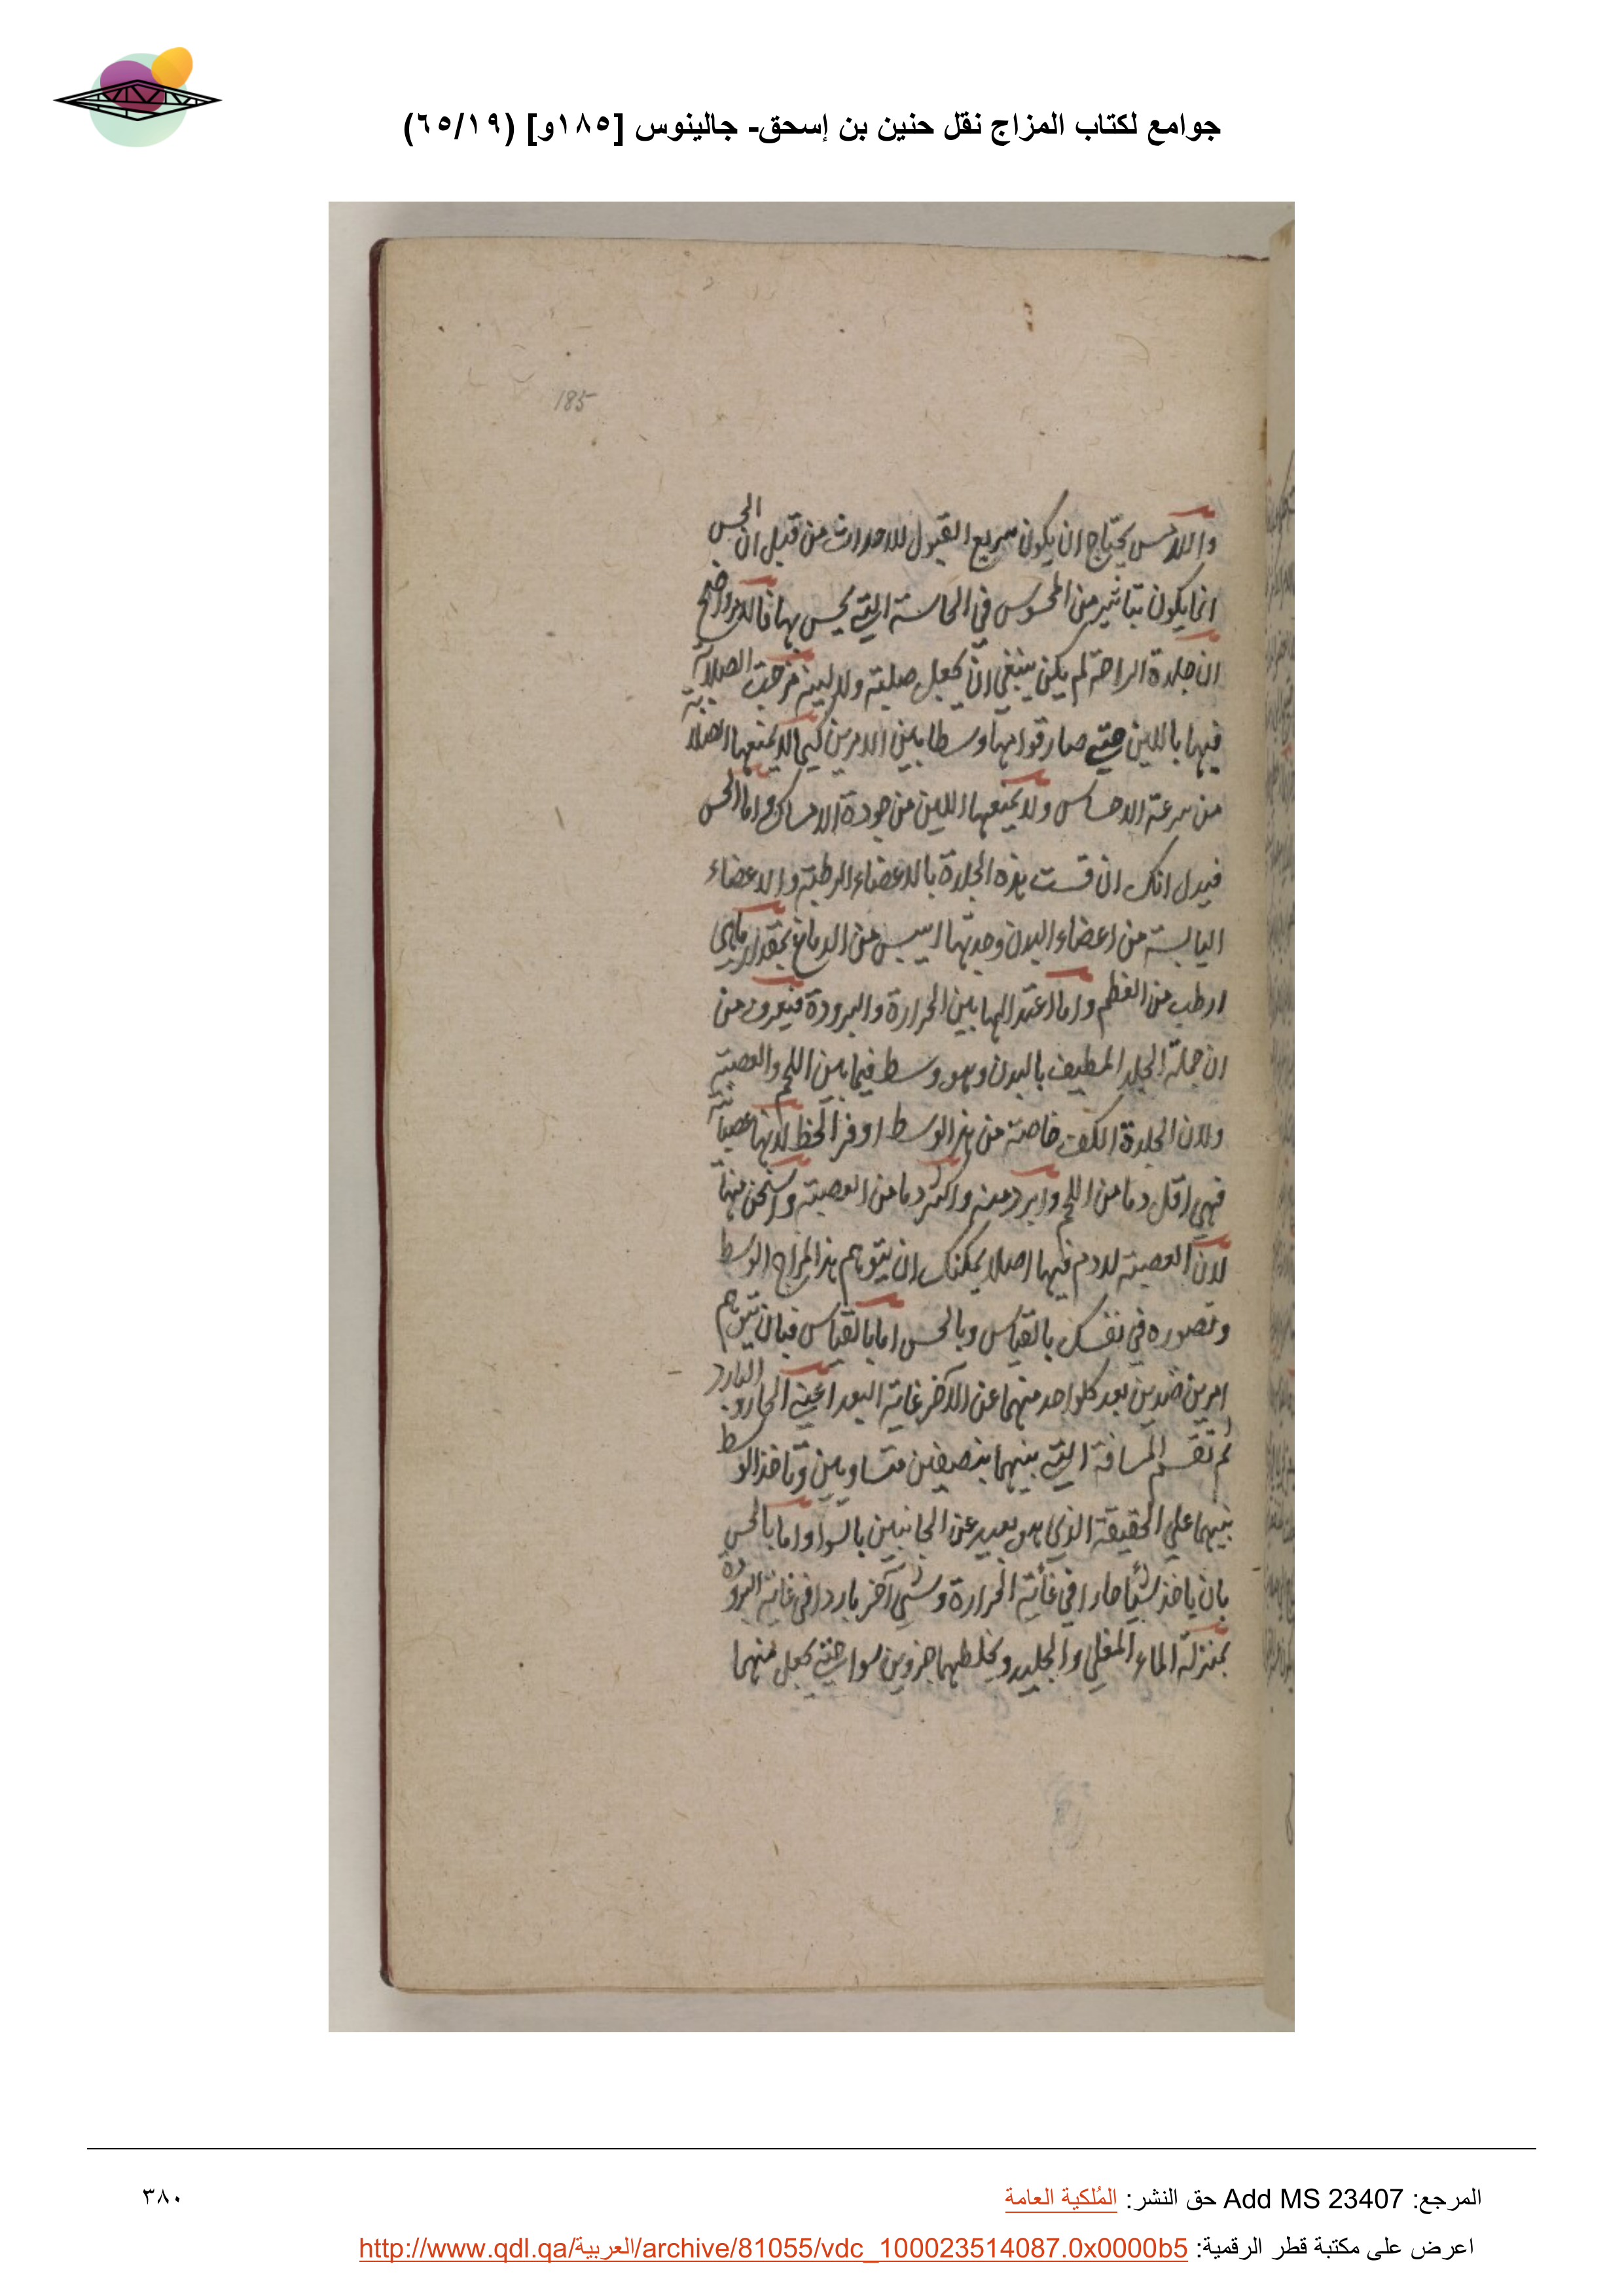 جوامع لكتاب المزاج نقل حنين بن إسحق- جالينوس [١٨٥و] (٦٥/١٩)
185
واللامس يحتاج ان يكون سريع القبول للاحداث من قبل ان الحس
انما يكون بتاثير من المحسوس في الحاسة التي يحس بها فالامر واضح
ان جلدة الراحة لم يكن ينبغي ان يجعل صلبة ولا لينة فمزجت الصلابة
فيها باللين حتي صار قوامها وسطا بين الامرين كيما لا يمنعها الصلابة
من سرعة الاحساس ولا يمنعها اللين من جودة الامساك واما الحس
فيدل انك ان قست هذه الجلدة بالاعضاء الرطبة والاعضاء
اليابسة من اعضاء البدن وجدتها ايبس من الدماغ بمقدار ماهي
ارطب من العظم واما اعتدالها بين الحرارة والبرودة فيعرف من
ان جملة الجلد المطيف بالبدن وهو وسط فيما بين اللحم والعصبة
ولان الجلدة الكف خاصة من هذا الوسط اوفر الحظ لانها عصبانية
فهي اقل دما من اللحم وابرد منه واكثر دما من العصبة واسخن منها
لان العصبة لا دم فيها اصلا يمكنك ان تتوهم هذا المزاج الوسط
وتصوره في نفسك بالقياس وبالحس اما بالقياس فبان تتوهم
امرين ضدين بعد كلواحد منهما عن الآخر غاية البعد اعني الحار والبارد
ثم تقسم المسافة التي بينهما بنصفين متساويين وتاخذ الوسط
بينهما علي الحقيقة الذي هو بعيد عن الجانبين بالسوا واما بالحس
بان ياخذ شيئا حارا في غاية الحرارة وشي آخر باردا في غاية البرودة
بمنزلة الماء المغلي والجليد ويخلطهما جزوين سوا حتي يجعل منهما
المرجع: Add MS 23407 حق النشر: المُلكية العامة
٣٨٠
اعرض على مكتبة قطر الرقمية: http://www.qdl.qa/العربية/archive/81055/vdc_100023514087.0x0000b5